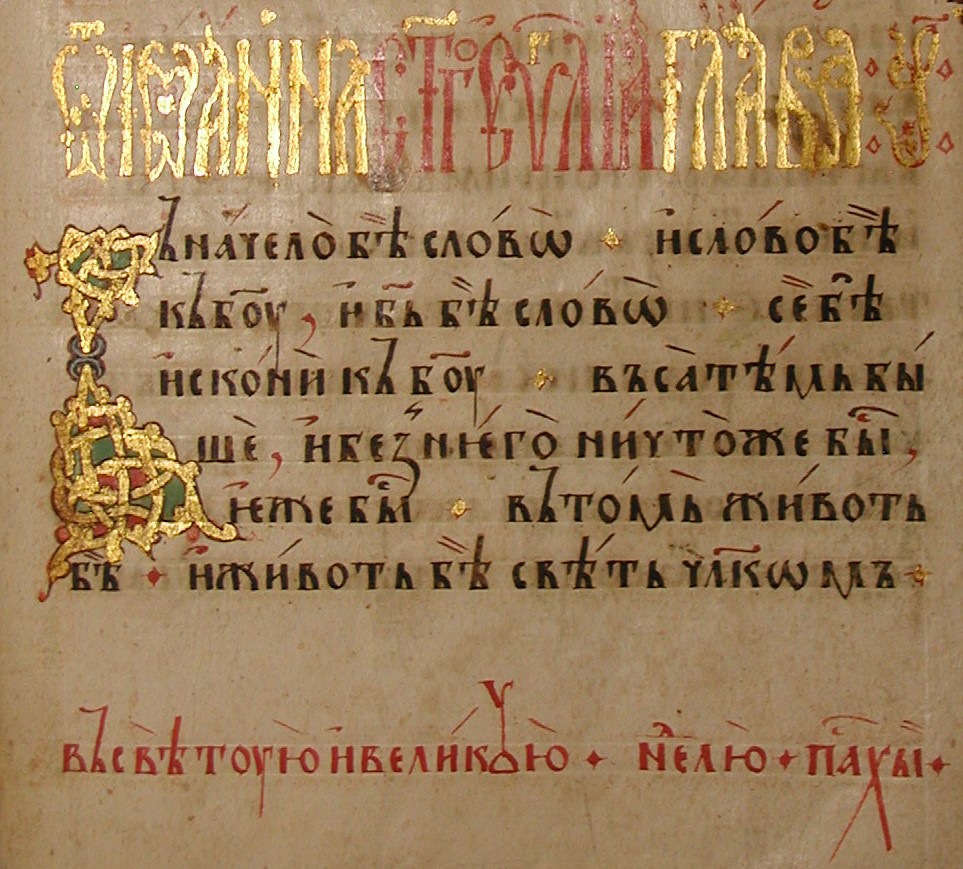 Ѿ ІѠАННА СТ҃ГО ЕѴ҃ЛІА ГЛАВА А҃
Въ начело бѣ слово · и слово бѣ
къ б҃оу, и б҃ь бѣ словѡ · се бѣ
искони къ б҃оу · въса тѣмь бы
ше, и без него ничтоже бы҃,
иеже бы҃ · въ томь животь
бѣ · и животь бѣ свѣть чл҃кѡмъ ·
въ свѣтоую и великꙋю · н҃елю · па҃хы ·